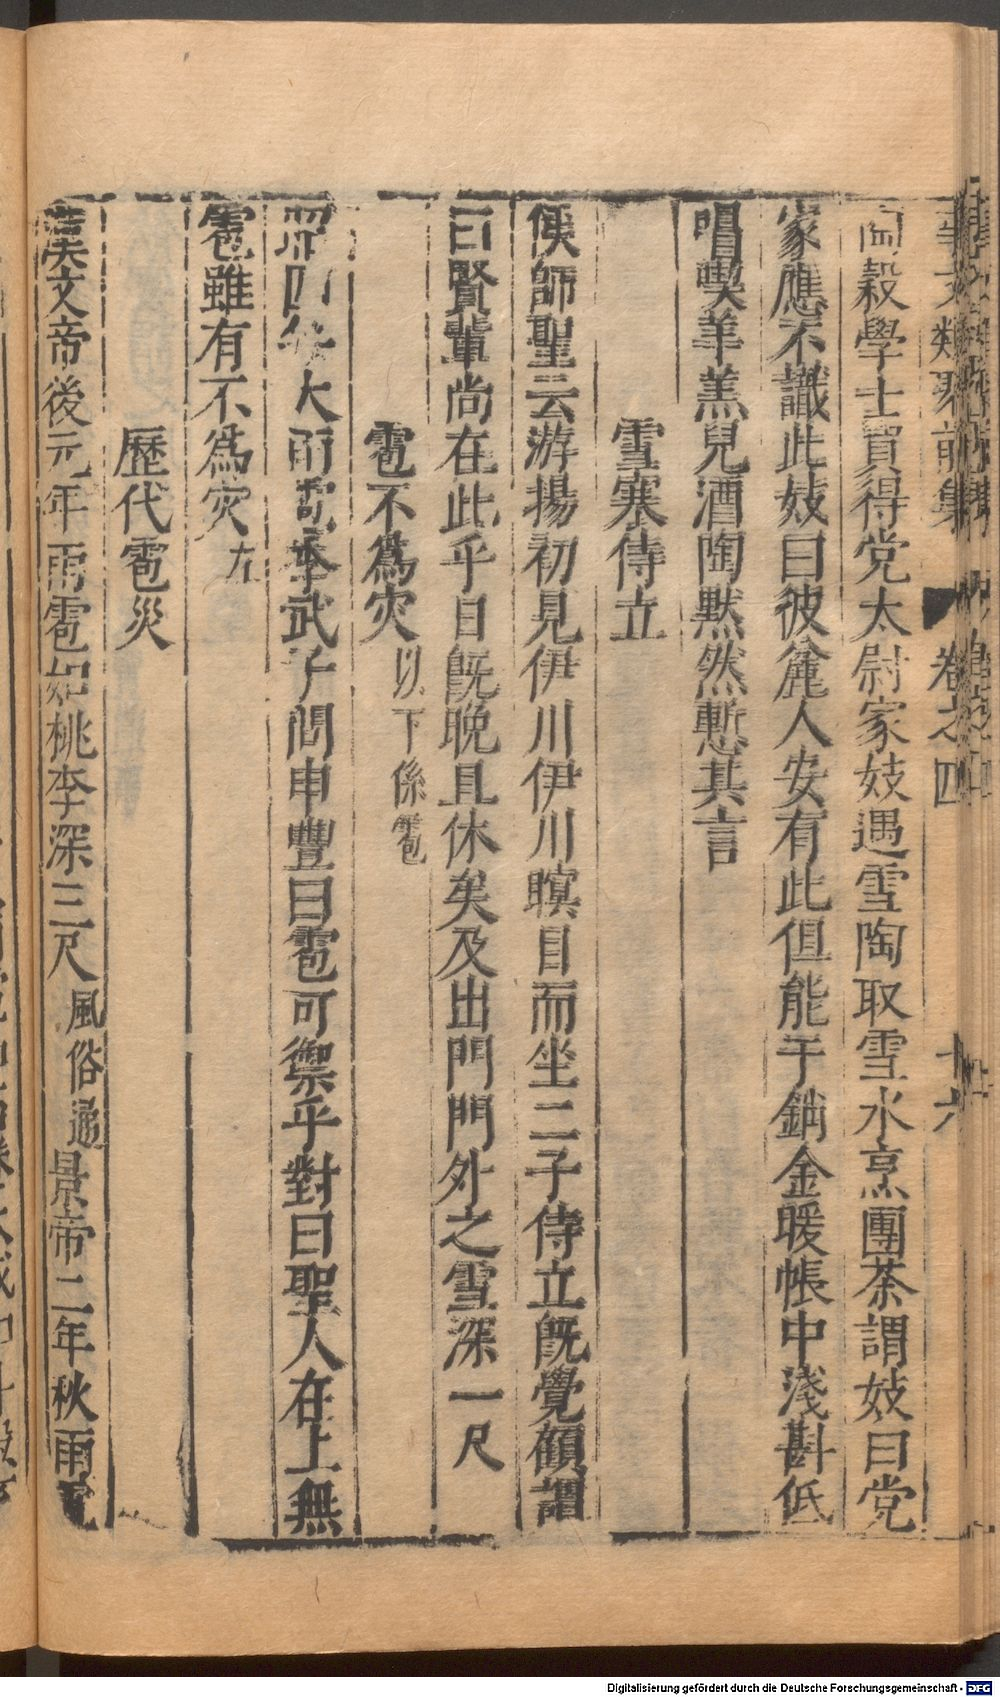 事文類聚前集 卷之四 十六
陶穀學士買得党太尉家妓遇雪陶取雪水烹團茶謂妓曰党
家應不識此妓曰彼麄人安有此但能于銷金暖帳中淺斟低
唱喫羊羔兒酒陶默然慙其言
雪寒侍立
侯師聖云游揚初見伊川伊川瞑目而坐二子侍立旣覺顧謂
曰賢輩尚在此乎日旣晚且休矣及出門門外之雪深一尺
雹不爲灾 以下係雹
昭四年大雨雹季武子問申豐曰雹可禦乎對曰聖人在上無
雹雖有不爲灾 左
歷代雹災
漢文帝後元年雨雹如桃李深三尺 風俗通 景帝二年秋雨雹
Digitalisierung gefördert durch die Deutsche Forschungsgemeinschaft - DFG